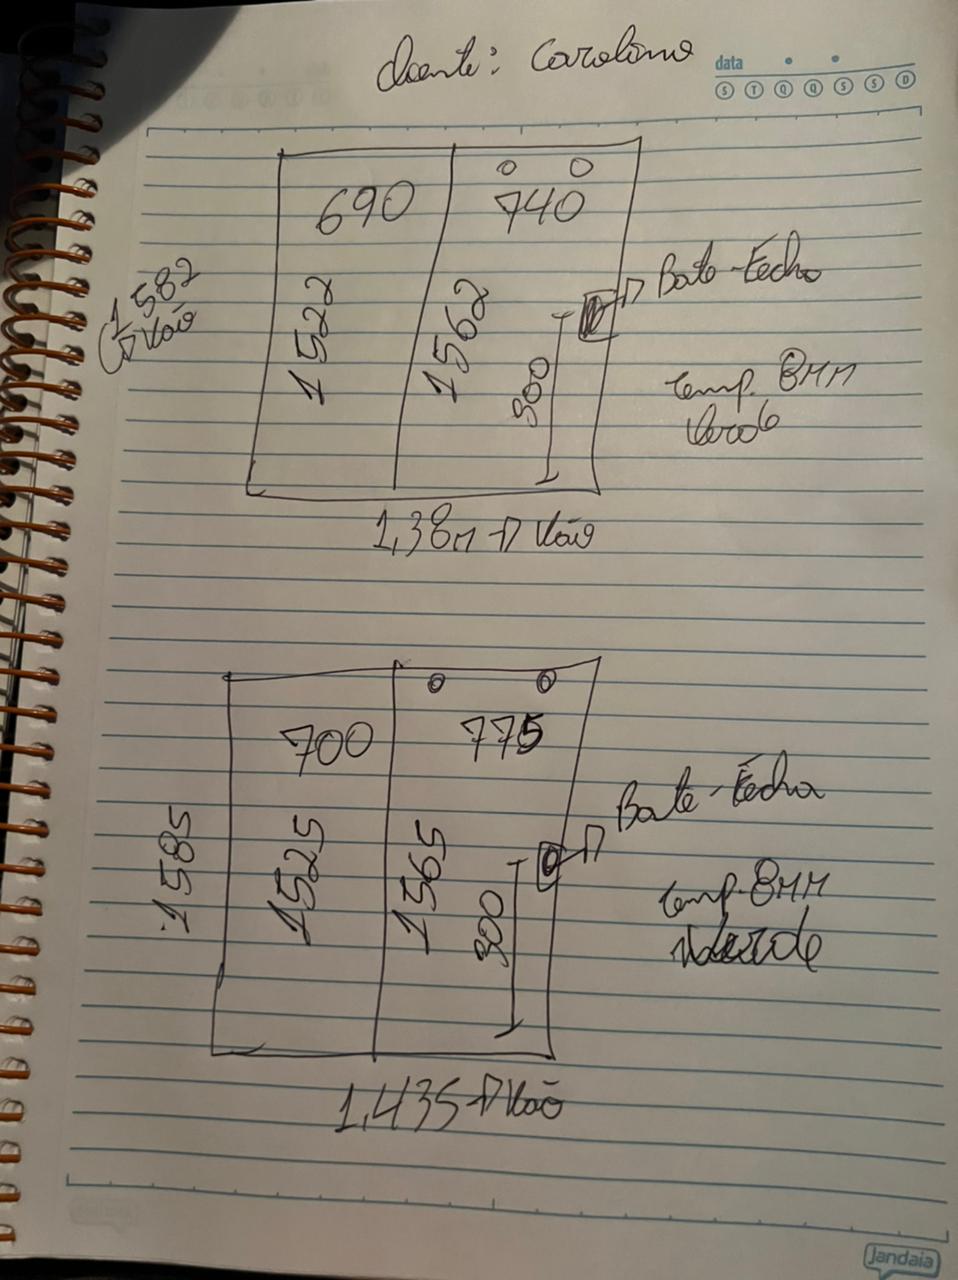 Cliente: Carolina
data
S T Q Q S S D
690
740
1582
Vão
1522
1562
300
Bate-Fecha
Temp. 8MM
Verde
1,38m Vão
700
775
1585
1525
1565
300
Bate-Fecha
Temp. 8MM
Verde
1,435 Vão
jandaia